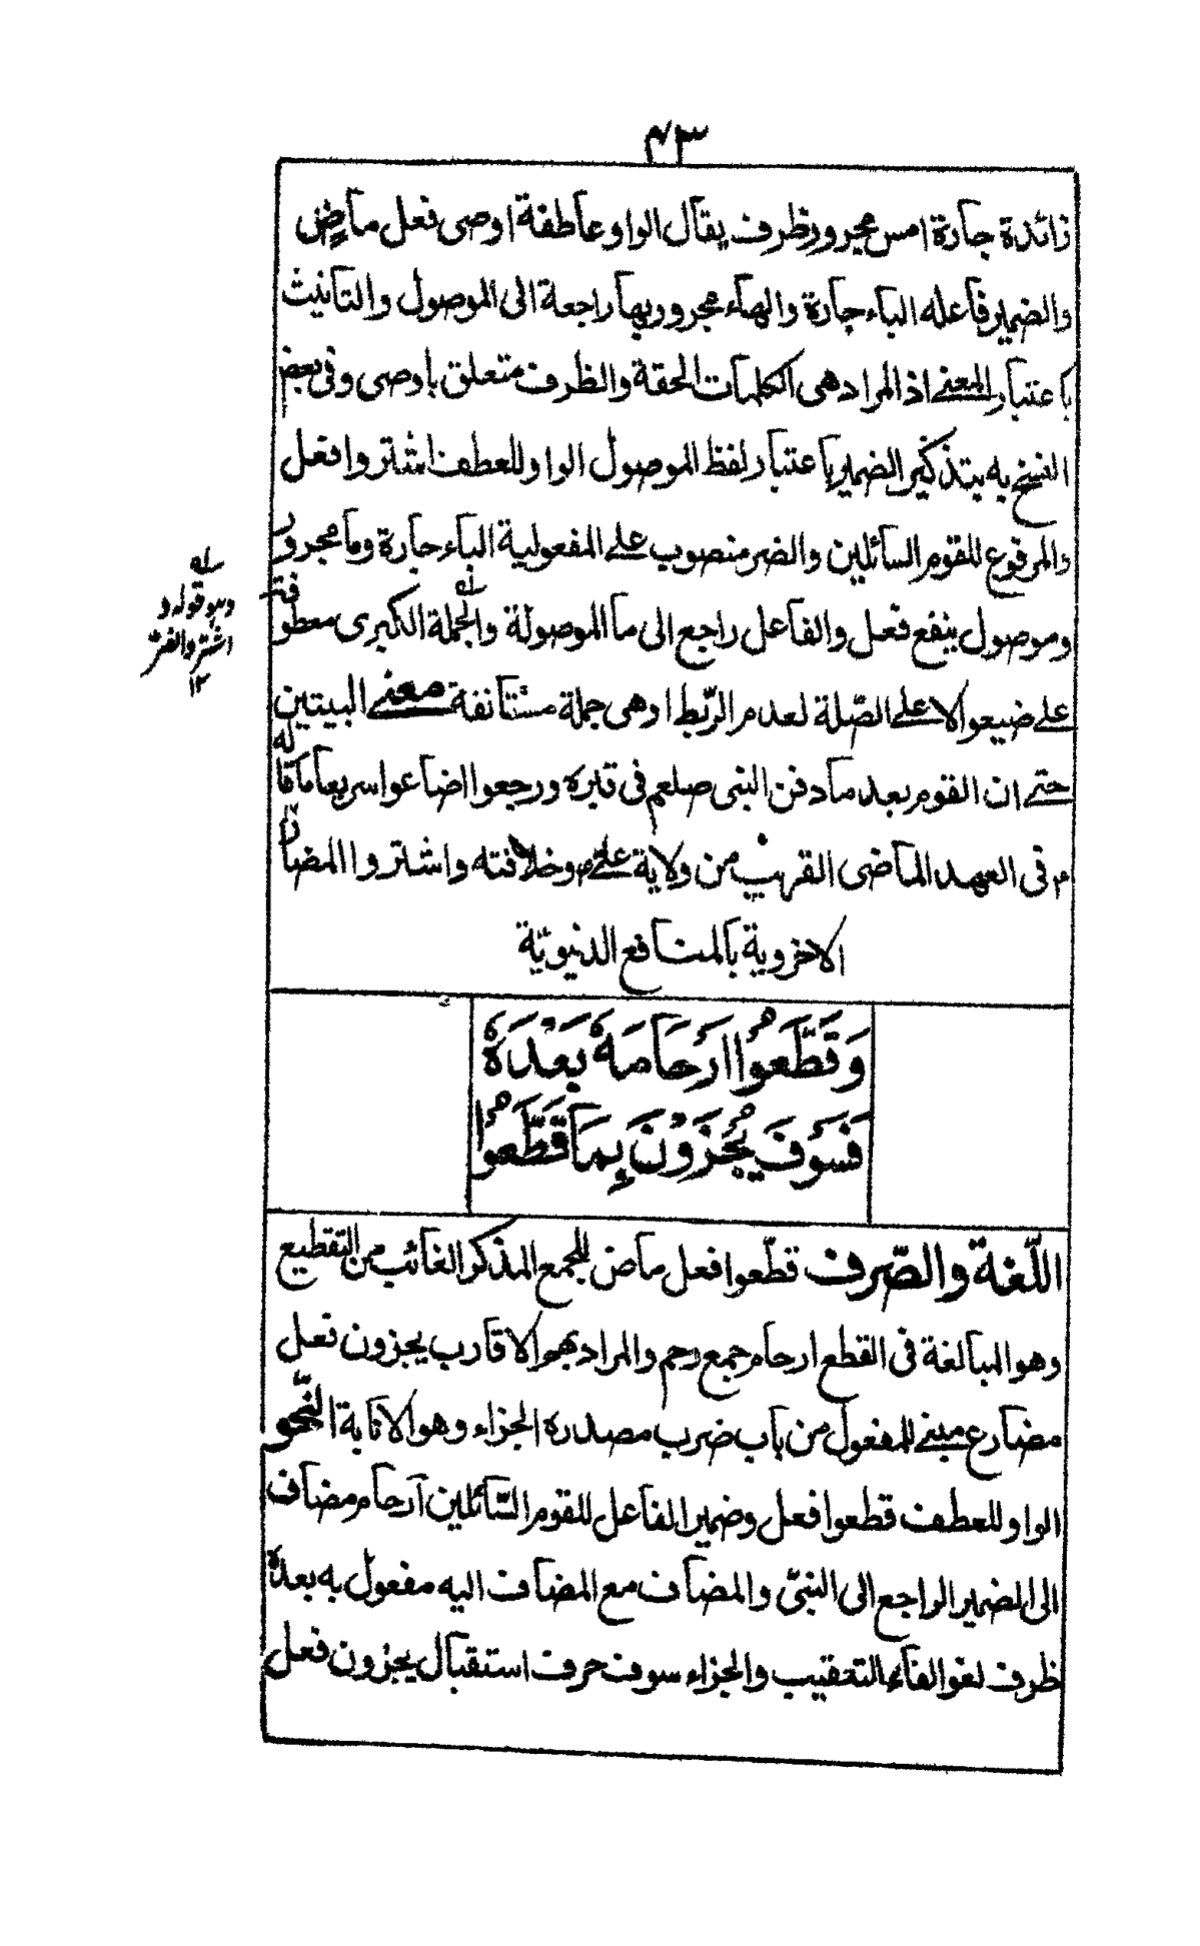 ٤٣
زائدة جارة امس مجرور ظرف يقال الواو عاطفة اوصى فعل ماضٍ
والضمير فاعله الباء جارة والهاء مجرور وبها راجعة الى الموصول والتانيث
باعتبار المعنے اذ المراد هى الكلمات الحقة والظرف متعلق باوصى وفى بعض
النسخ به بتذكير الضمير باعتبار لفظ الموصول الواو للعطف اشتروا فعل
والمرفوع للقوم السائلين والضر منصوب علے المفعولية الباء جارة وما مجرور
وموصول ينفع فعل والفاعل راجع الى ما الموصولة والجملة الكبرى معطوفة
علے ضيعوا لا علے الصّلة لعدم الرّبط اذ هى جملة مستانفة معنے البيتين
حتے ان القوم بعد ما دفن النبى صلعم فى قبره ورجعوا اضاعوا سريعا ما قاله
فى العهد الماضى القريب من ولاية علےؑ وخلافته واشتروا المضار
الاخروية بالمنافع الدنيويّة
وَقَطَّعُوْا اَرْحَامَهٗ بَعْدَهٗ
فَسَوْفَ يُجْزَوْنَ بِمَا قَطَّعُوْا
اللّغة والصّرف قطّعوا فعل ماض للجمع المذكر الغائب من التقطيع
وهو المبالغة فى القطع ارحام جمع رحم والمراد بهم الاقارب يجزون فعل
مضارع مبنے للمفعول من باب ضرب مصدره الجزاء وهو الاثابة النّحو
الواو للعطف قطعوا فعل وضمير الفاعل للقوم السّائلين ارحام مضاف
الى الضمير الراجع الى النبىّ والمضاف مع المضاف اليه مفعول به بعده
ظرف لغو الفاء للتعقيب والجزاء سوف حرف استقبال يجزون فعل
له
وهو قوله و
اشتروا الضر
١٢